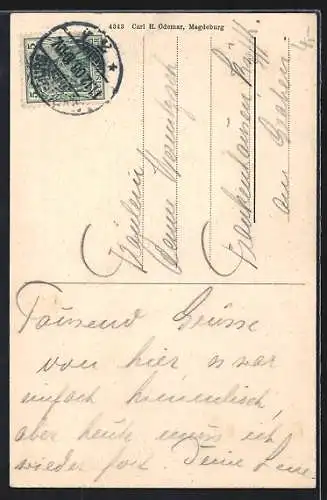 4343 Carl H. Odemar, Magdeburg
5
5
Fräulein
Frankenhausen, Kyffh.
am Graben
Tausend Grüsse
von hier, es war
einfach himmlisch,
aber heute muss ich
wieder fort. Deine